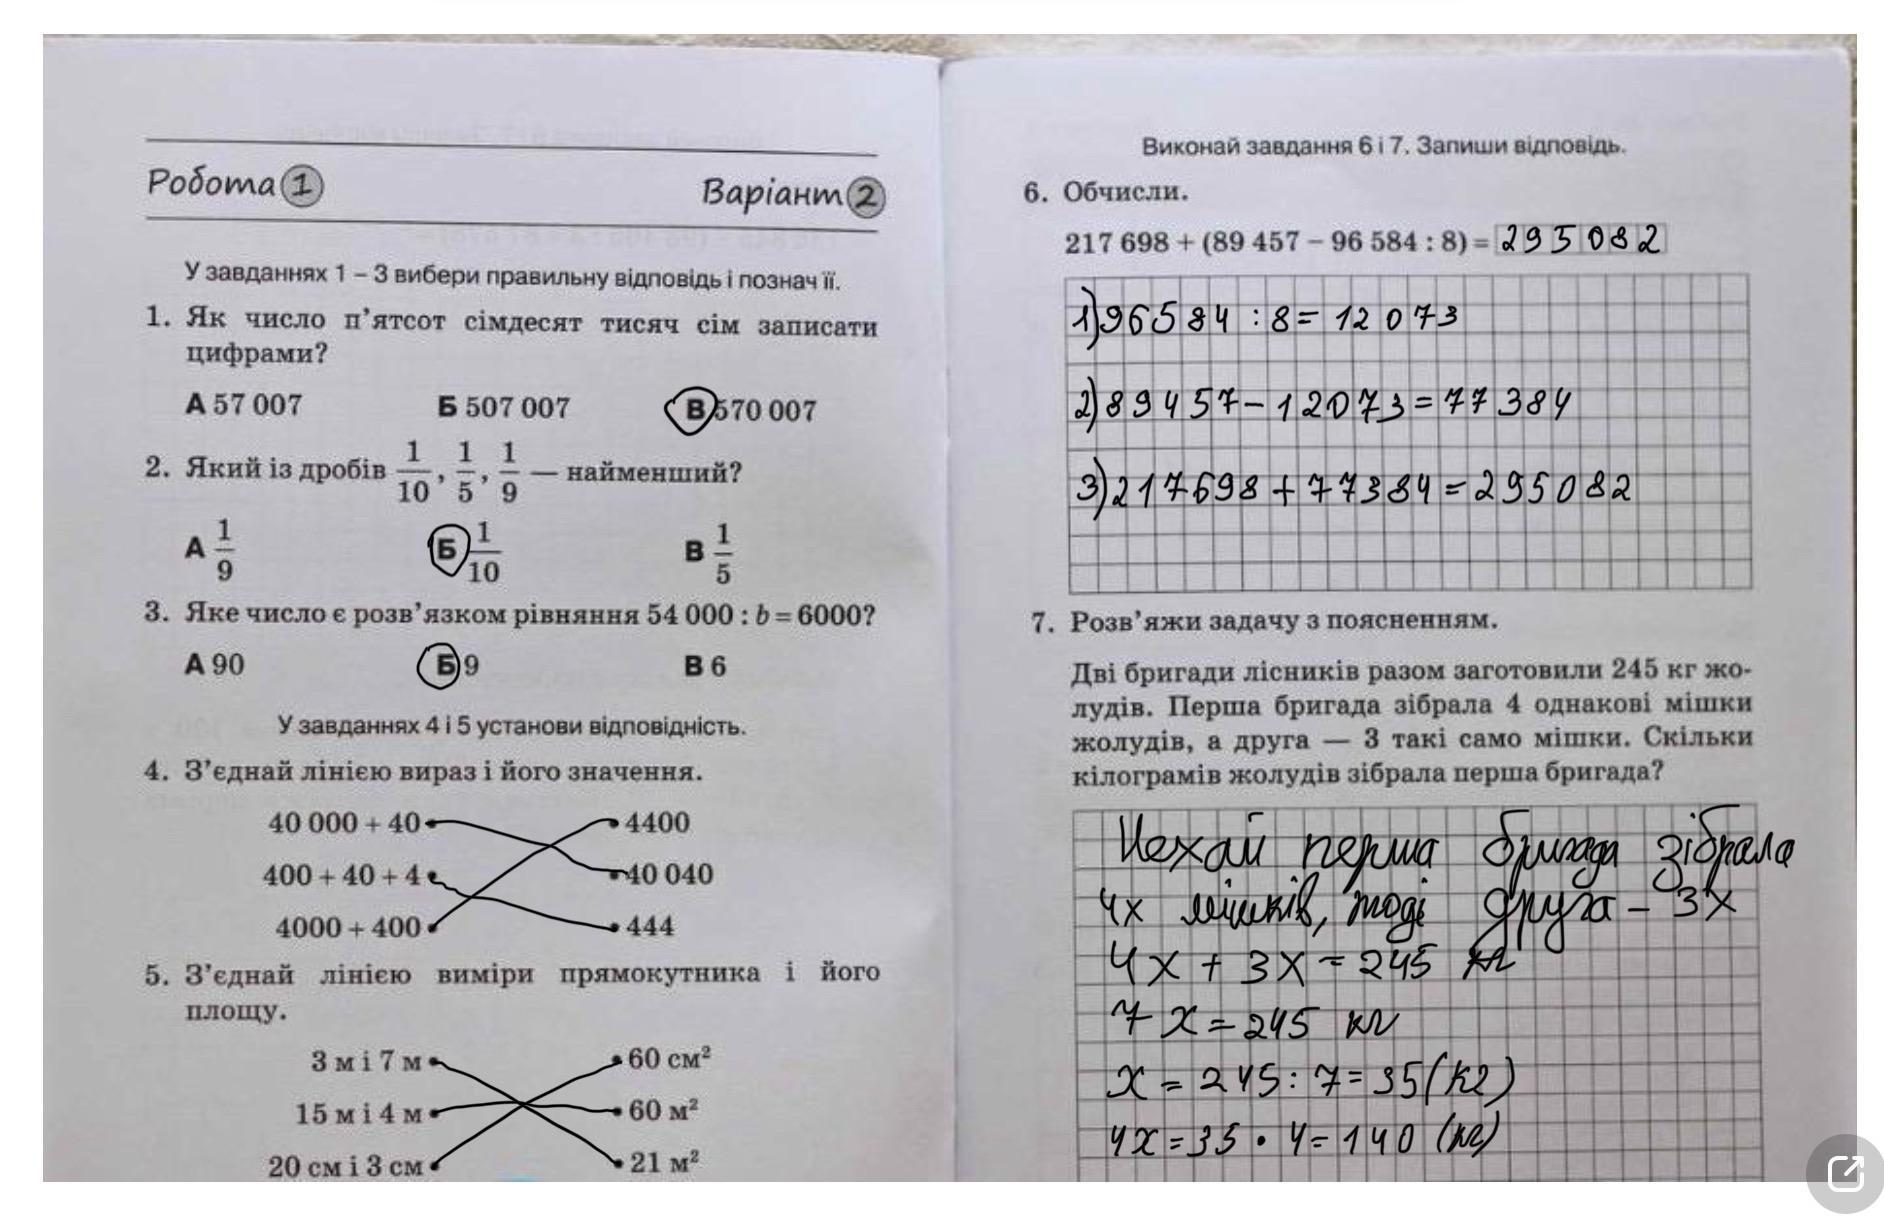 Робота 1
Варіант 2
У завданнях 1 – 3 вибери правильну відповідь і познач її.
1. Як число п’ятсот сімдесят тисяч сім записати
цифрами?
А 57 007 Б 507 007 В 570 007
2. Який із дробів 1/10, 1/5, 1/9 — найменший?
А 1/9 Б 1/10 В 1/5
3. Яке число є розв’язком рівняння 54 000 : b = 6000?
А 90 Б 9 В 6
У завданнях 4 і 5 установи відповідність.
4. З’єднай лінією вираз і його значення.
40 000 + 40 4400
400 + 40 + 4 40 040
4000 + 400 444
5. З’єднай лінією виміри прямокутника і його
площу.
3 м і 7 м 60 см²
15 м і 4 м 60 м²
20 см і 3 см 21 м²
Виконай завдання 6 і 7. Запиши відповідь.
6. Обчисли.
217 698 + (89 457 – 96 584 : 8) = 295082
1) 96584 : 8 = 12073
2) 89457 – 12073 = 77384
3) 217698 + 77384 = 295082
7. Розв’яжи задачу з поясненням.
Дві бригади лісників разом заготовили 245 кг жо-
лудів. Перша бригада зібрала 4 однакові мішки
жолудів, а друга — 3 такі само мішки. Скільки
кілограмів жолудів зібрала перша бригада?
Нехай перша бригада зібрала
4х мішків, тоді друга – 3х
4х + 3х = 245 кг
7х = 245 кг
х = 245 : 7 = 35 (кг)
4х = 35 · 4 = 140 (кг)